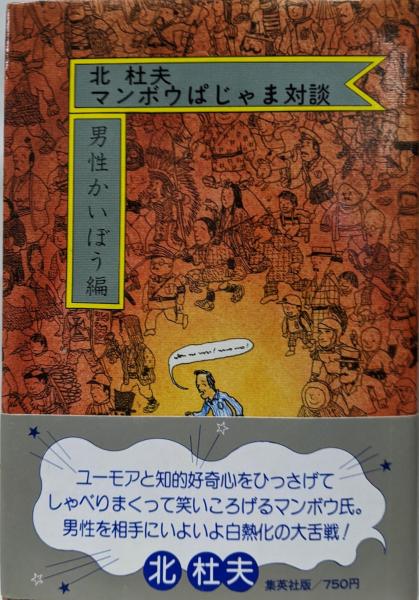 北 杜夫
マンボウぱじゃま対談
男性かいぼう編
ユーモアと知的好奇心をひっさげて
しゃべりまくって笑いころげるマンボウ氏。
男性を相手にいよいよ白熱化の大舌戦!
北 杜 夫
集英社版/750円